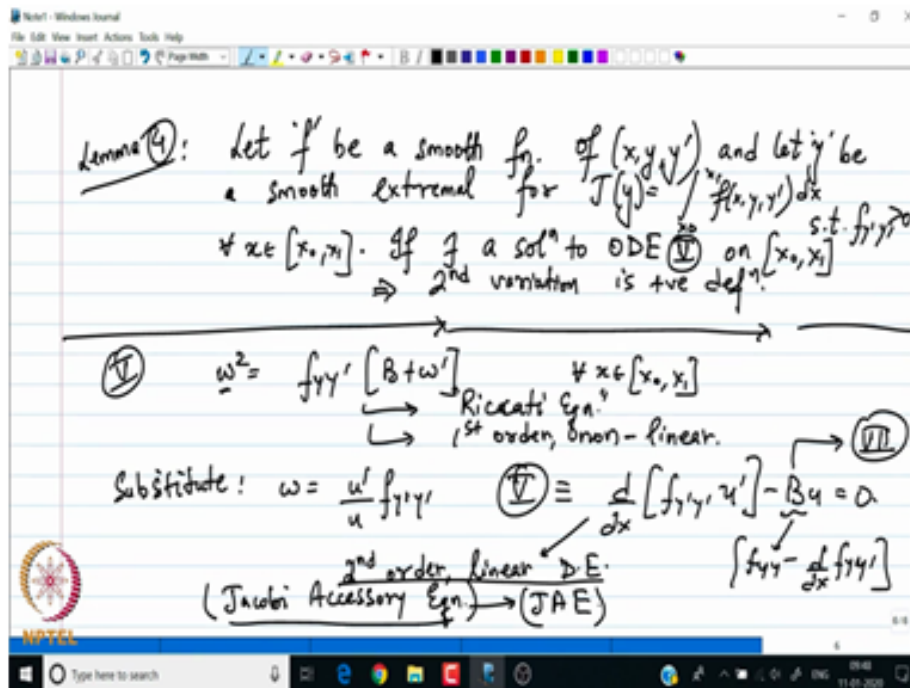 Note1 - Windows Journal
File Edit View Insert Actions Tools Help
Page Width
B I
Lemma ④: Let 'f' be a smooth fn. of (x, y, y') and let 'y' be
a smooth extremal for J(y) = ∫_{x0}^{x1} f(x, y, y') dx
s.t. f_{y'y'} > 0
∀ x ∈ [x₀, x₁]. If ∃ a solⁿ to ODE Ⓥ on [x₀, x₁]
⇒ 2nd variation is +ve defⁿ.
Ⓥ w² = fyy' [B + w'] ∀ x ∈ [x₀, x₁]
→ Riccati Eqn.
→ 1st order, non-linear.
Substitute: w = u'/u f_{y'y'} Ⓥ ≡ d/dx [f_{y'y'} u'] - Bu = 0. → VII
[fyy - d/dx fyy']
2nd order, linear D.E.
(Jacobi Accessory Eqn.) → (JAE)
NPTEL
6
Type here to search
ENG
09:40
11-01-2020